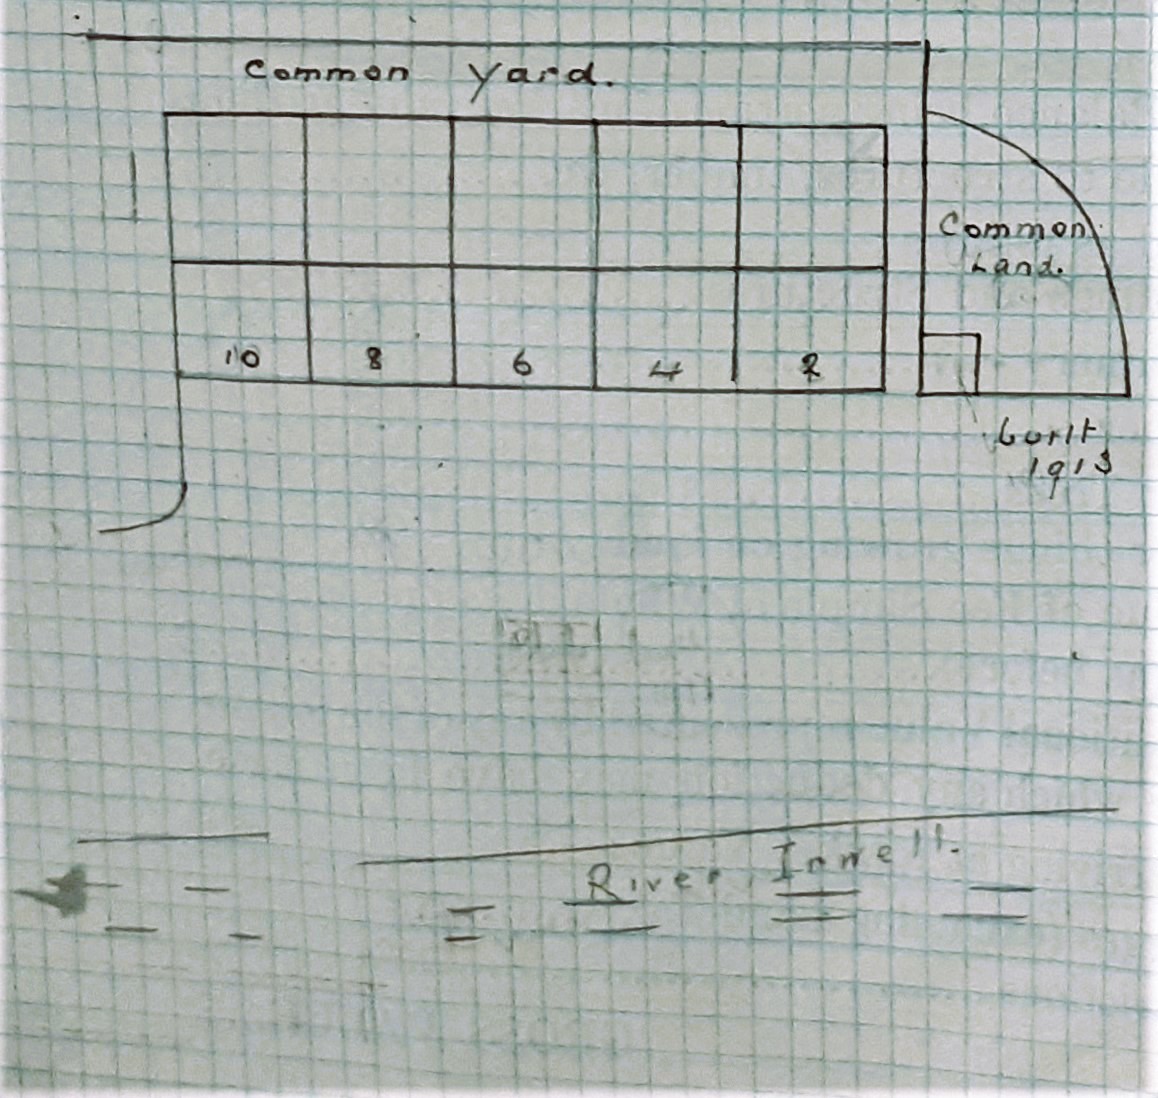 Common Yard.
Common
Land.
10 8 6 4 2
built
1913
River Irwell.